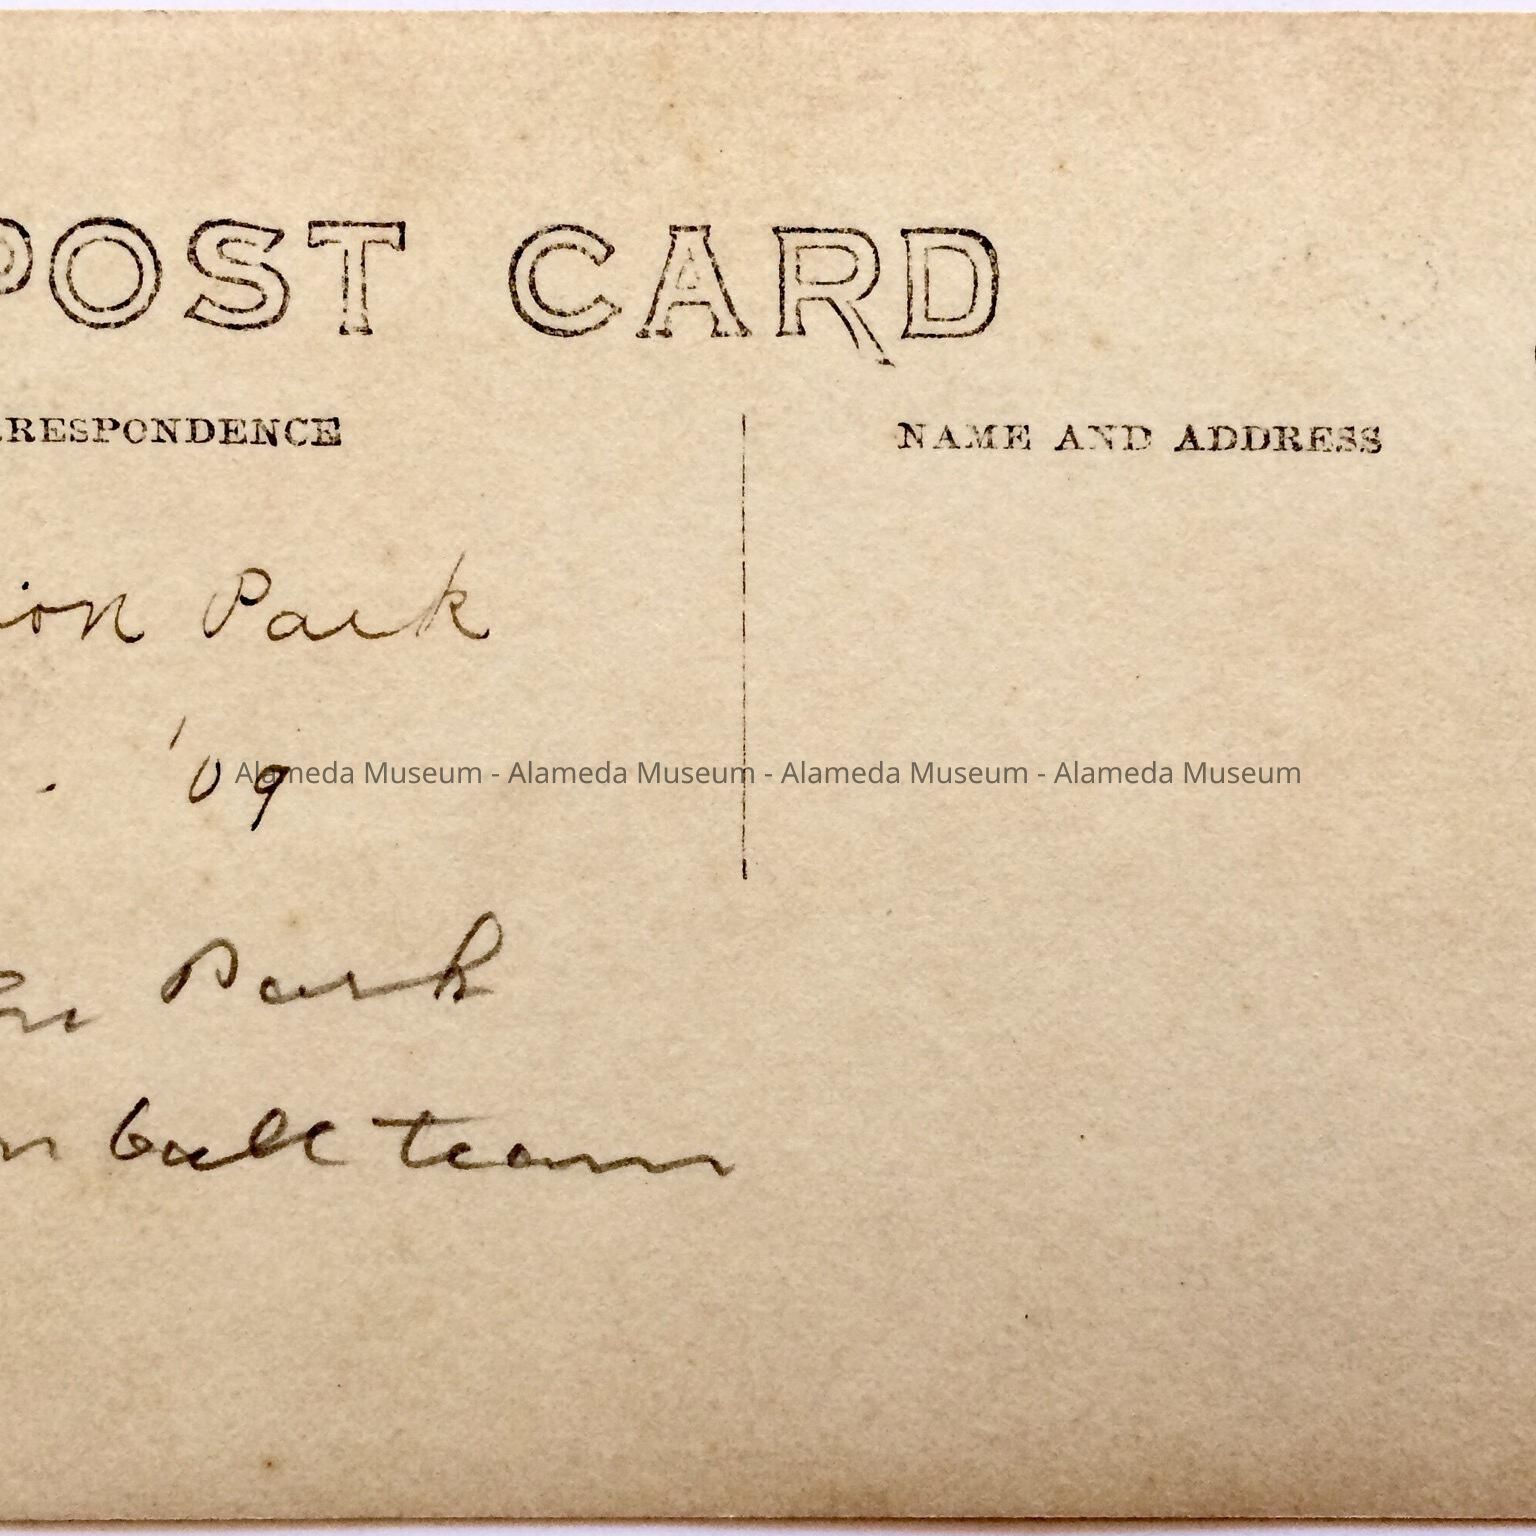 POST CARD
RRESPONDENCE
NAME AND ADDRESS
ion Park
'09
Alameda Museum - Alameda Museum - Alameda Museum - Alameda Museum
Park
ball team